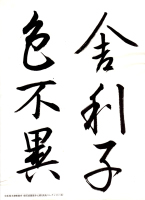 舎利子
色不異